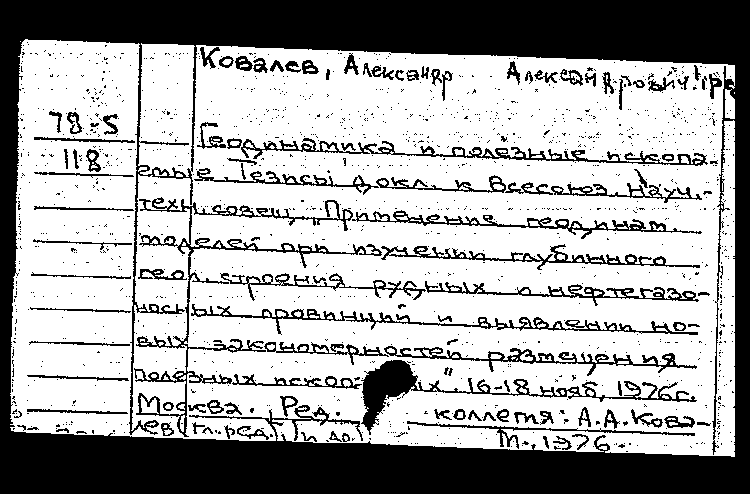 Ковалев, Александр Александрович. ред
78-5
118
Геодинамика и полезные ископа-
емые. Тезисы докл. к Всесоюз. науч.-
техн. совещ. "Применение геодинам.
моделей при изучении глубинного
геол. строения рудных и нефтегазо-
носных провинций и выявлении но-
вых закономерностей размещения
полезных ископ ых". 16-18 нояб, 1976г.
Москва. Ред. коллегия: А.А. Кова-
лев (гл. ред.) и др.
М., 1976.